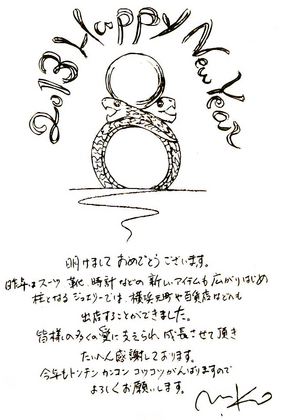 2013 Happy New Year
明けまして おめでとうございます。
昨年はスーツ 靴、時計などの 新しいアイテムも広がりはじめ
柱となる ジュエリーでは、横浜元町や百貨店などにも
出店することができました。
皆様の多くの愛に支えられ、成長させて頂き
たいへん感謝しております。
今年もトンテン カンコン コツコツ がんばりますので
よろしくお願いします。